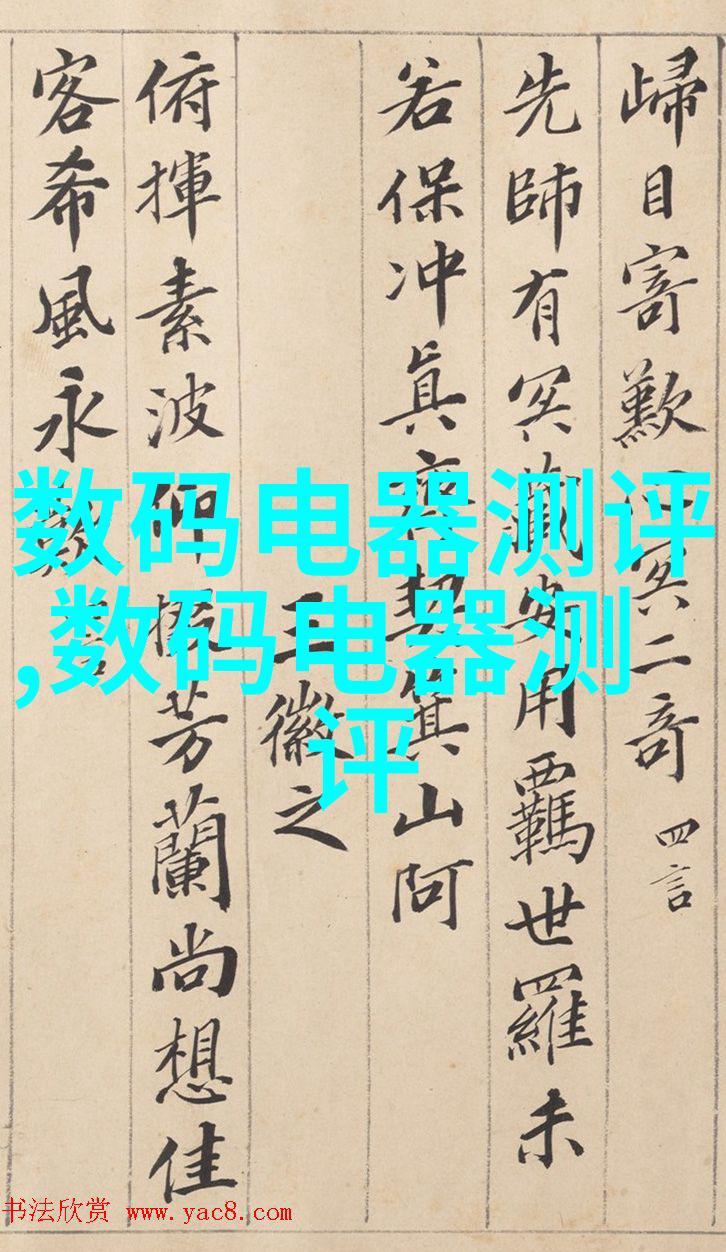 歸目寄歎心冥二奇 四言
先師有冥藏安用羈世羅未
若保冲真齊契箕山阿
王徽之
俯揮素波仰掇芳蘭尚想佳
客希風永歎
数码电器测评
,数码电器测
评
书法欣赏 www.yac8.com